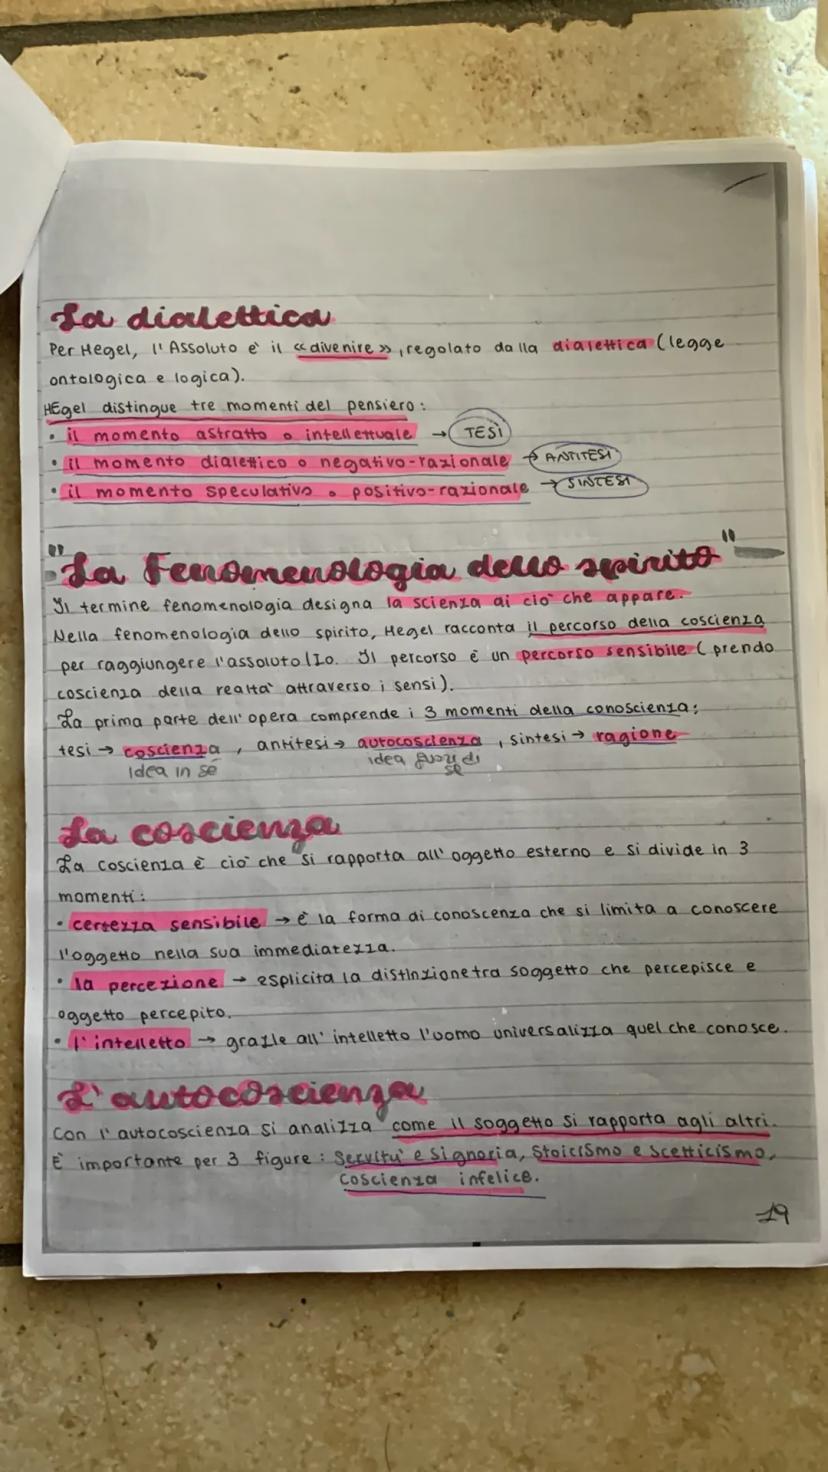 La dialettica
Per Hegel, l'Assoluto è il «divenire», regolato dalla dialettica (legge
ontologica e logica).
HEgel distingue tre momenti del pensiero:
• il momento astratto o intellettuale → TESI
• il momento dialettico o negativo-razionale → ANTITESI
• il momento speculativo o positivo-razionale → SINTESI
"La Fenomenologia dello spirito"
Il termine fenomenologia designa la scienza di ciò che appare.
Nella fenomenologia dello spirito, Hegel racconta il percorso della coscienza
per raggiungere l'assoluto/Io. Il percorso è un percorso sensibile (prendo
coscienza della realtà attraverso i sensi).
La prima parte dell'opera comprende i 3 momenti della conoscienza:
tesi → coscienza, antitesi → autocoscienza, sintesi → ragione
idea in sé idea fuori di
sé
La coscienza
La coscienza è ciò che si rapporta all'oggetto esterno e si divide in 3
momenti:
• certezza sensibile → è la forma di conoscenza che si limita a conoscere
l'oggetto nella sua immediatezza.
• la percezione → esplicita la distinzione tra soggetto che percepisce e
oggetto percepito.
• l'intelletto → grazie all'intelletto l'uomo universalizza quel che conosce.
L'autocoscienza
Con l'autocoscienza si analizza come il soggetto si rapporta agli altri.
È importante per 3 figure: Servitù e Signoria, Stoicismo e Scetticismo,
Coscienza infelice.
19